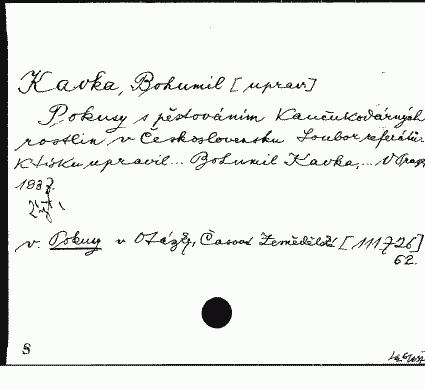 Kavka, Bohumil [uprav]
Pokusy s pěstováním kaučukodárných
rostlin v Československu Soubor referátů.
K tisku upravil... Bohumil Kavka,... V Praze,
1937.
v. Pokusy v Otázky, Časové Zemědělské [111726]
62.
S